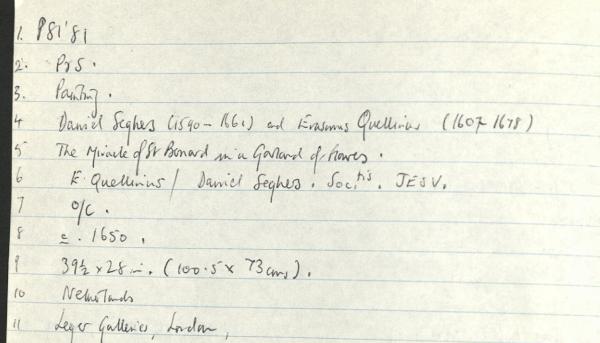 1. P81'81
2. PrS.
3. Painting.
4 Daniel Seghers (1590-1661) and Erasmus Quellinus (1607-1678)
5 The Miracle of St Bernard in a Garland of Flowers.
6 E. Quellinius / Daniel Seghers. Soctis. JESV.
7 o/c.
8 c. 1650.
9 39½ x 28 in. (100.5 x 73 cms).
10 Netherlands
11 Leger Galleries, London,